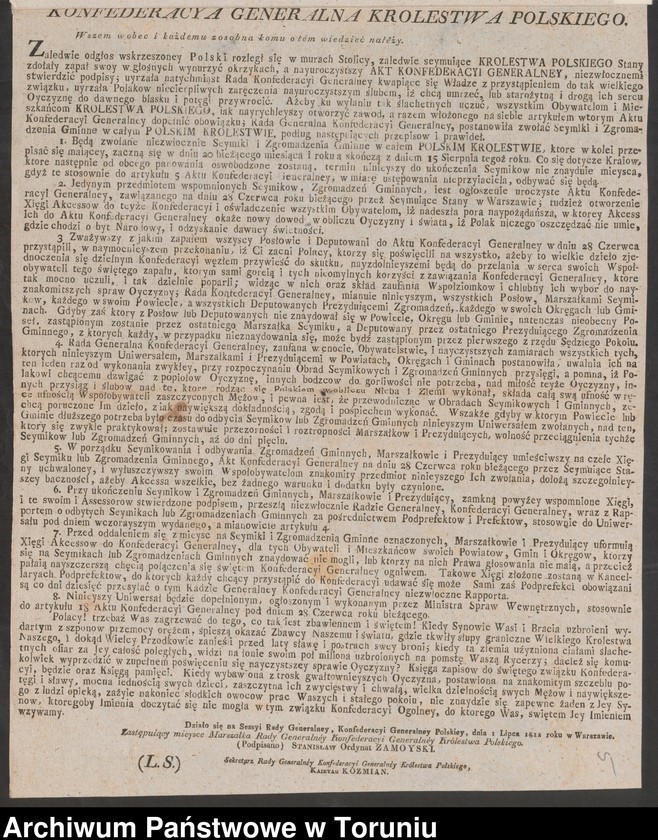 KONFEDERACYA GENERALNA KROLESTWA POLSKIEGO.
Wszem wobec i każdemu zosobna komu o tém wiedzieć należy.
Zaledwie odgłos wskrzeszoney Polski rozległ się w murach Stolicy, zaledwie seymuiące KROLESTWA POLSKIEGO Stany
zdołały zapał swoy w głośnych wynurzyć okrzykach, a nayuroczystszy AKT KONFEDERACYI GENERALNEY, niezwłocznemi
stwierdzić podpisy; uyrzała natychmiast Rada Konfederacyi Generalney kwapiące się Władze z przystąpieniem do tak wielkiego
związku, uyrzała Polakow niecierpliwych zaręczenia nayuroczystszym ślubem, iż chcą umrzeć, lub starożytną i drogą ich sercu
Oyczyznę do dawnego blasku i potęgi przywrocić. Ażeby ku wylaniu tak ślachetnych uczuć, wszystkim Obywatelom i Mie-
szkańcom KROLESTWA POLSKIEGO, iak nayrychleyszy otworzyć zawod, a razem włożonego na siebie artykułem wtorym Aktu
Konfederacyi Generalney dopełnić obowiązku; Rada Generalna Konfederacyi Generalney, postanowiła zwołać Seymiki i Zgroma-
dzenia Gminne w całym POLSKIM KROLESTWIE, podług następuiących przepisow i prawideł.
1. Będą zwołane niezwłocznie Seymiki i Zgromadzenia Gminne w całem POLSKIM KROLESTWIE, ktore w kolei prze-
pisać się maiący, zaczną się w dniu 20 bieżącego miesiąca i roku a skończą z dniem 15 Sierpnia tegoż roku. Co się dotycze Kraiow,
ktore następnie od obcego panowania oswobodzone zostaną, termin ninieyszy do ukończenia Seymikow nie znayduie mieysca,
gdyż te stosownie do artykułu 5 Aktu Konfederacyi Generalney, w miarę ustępowania nieprzyiaciela, odbywać się będą.
2. Jedynym przedmiotem wspomnionych Seymikow, Zgromadzeń Gminnych, iest ogłoszenie uroczyste Aktu Konfede-
racyi Generalney, zawiązanego na dniu 28 Czerwca roku bieżącego przez Seymuiące Stany w Warszawie; tudzież otworzenie
Xięgi Akcessow do teyże Konfederacyi i oświadczenie wszystkim Obywatelom, iż nadeszła pora naypożądańsza, w ktorey Akcess
ich do Aktu Konfederacyi Generalney okaże nowy dowod w obliczu Oyczyzny i świata, iż Polak niczego oszczędzać nie umie,
gdzie chodzi o byt Narodowy, i odzyskanie dawney świetności.
3. Zważywszy z jakim zapałem wszyscy Posłowie i Deputowani do Aktu Konfederacyi Generalney w dniu 28 Czerwca
przystąpili, w naymocnieyszem przekonaniu, iż Ci zacni Polacy, ktorzy się poświęcili na wszystko, ażeby to wielkie dzieło zje-
dnoczenia się dzielnym Konfederacyi węzłem przywieść do skutku, nayzdolnieyszemi będą do przelania w serca swoich Wspoł-
obywateli tego świętego zapału, ktorym sami goreią i tych nieomylnych korzyści z zawiązania Konfederacyi Generalney, ktore
tak mocno uczuli, i tak dzielnie poparli; widząc w nich oraz skład zaufania Wspołziomkow i chlubny ich wybor do nay-
znakomitszych spraw Oyczyzny; Rada Generalna Konfederacyi Generalney, mianuie ninieyszym, wszystkich Posłow, Marszałkami Seymi-
kow, każdego w swoim Powiecie, a wszystkich Deputowanych Prezyduiącemi Zgromadzeń, każdego w swoich Okręgach lub Gmi-
nach. Gdyby zaś ktory z Posłow lub Deputowanych nie znaydował się w Powiecie, Okręgu lub Gminie, natenczas nieobecny Po-
seł, zastąpionym zostanie przez ostatniego Marszałka Seymiku, a Deputowany przez ostatniego Prezyduiącego Zgromadzenia
Gminnego, z ktorych każdy, w przypadku nieznaydowania się, może bydź zastąpionym przez pierwszego z rzędu Sędziego Pokoiu.
4. Rada Generalna Konfederacyi Generalney, zaufana w cnocie, Obywatelstwie, i nayczystszych zamiarach wszystkich tych,
ktorych ninieyszym Uniwersałem, Marszałkami i Prezyduiącemi w Powiatach, Okręgach i Gminach postanowiła, uwalnia ich na
ten ieden raz od wykonania zwykłey, przy rozpoczynaniu Obrad Seymikowych i Zgromadzeń Gminnych Przysięgi, a pomna, iż Po-
lakowi chcącemu dzwigać z popiołow Oyczyznę, innych bodzcow do gorliwości nie potrzeba, nad miłość teyże Oyczyzny, in-
nych przysiąg i ślubow nad te, ktore rodząc się Polakiem Niebu i Ziemi wykonał, składa całą swą ufność w rę-
ce ufnością Wspołobywateli zaszczyconych Mężow, i pewna iest, że przewodnicząc w Obradach Seymikowych i Gminnych, ze-
chcą poruczone Im dzieło, z iak naywiększą dokładnością, zgodą i pospiechem wykonać. Wszakże gdyby w ktorym Powiecie lub
Gminie dłuższego potrzeba było czasu do odbycia Seymikow lub Zgromadzeń Gminnych ninieyszym Uniwersałem zwołanych, nad ten,
ktory się zwykle praktykował; zostawuie przezorności i roztropności Marszałkow i Prezyduiących, wolność przeciągnienia tychże
Seymikow lub Zgromadzeń Gminnych, aż do dni pięciu.
5. W porządku Seymikowania i odbywania Zgromadzeń Gminnych, Marszałkowie i Prezyduiący umieściwszy na czele Xię-
gi Seymiku lub Zgromadzenia Gminnego, Akt Konfederacyi Generalney na dniu 28 Czerwca roku bieżącego przez Seymuiące Sta-
ny uchwaloney, i wyłuszczywszy swoim Wspołobywatelom znakomity przedmiot ninieyszego Ich zwołania, dołożą szczegolniey-
szey baczności, ażeby Akcessa wszelkie, bez żadnego warunku i dodatku były czynione.
6. Przy ukończeniu Seymikow i Zgromadzeń Gminnych, Marszałkowie i Prezyduiący, zamkną powyżey wspomnione Xięgi,
i te swoim i Assessorow stwierdzone podpisem, prześlą niezwłocznie Radzie Generalney, Konfederacyi Generalney, wraz z Rap-
portem o odbytych Seymikach lub Zgromadzeniach Gminnych za pośrednictwem Podprefektow i Prefektow, stosownie do Uniwer-
sału pod dniem wczorayszym wydanego, a mianowicie artykułu 4.
7. Przed oddaleniem się z mieysc na Seymiki i Zgromadzenia Gminne oznaczonych, Marszałkowie i Prezyduiący uformuią
Xięgi Akcessow do Konfederacyi Generalney, dla tych Obywateli i Mieszkańcow swoich Powiatow, Gmin i Okręgow, ktorzy
się na Seymikach lub Zgromadzeniach Gminnych znaydować nie mogli, lub ktorzy na nich Prawa głosowania nie maią, a przecież
pałaią nayszczerszą chęcią połączenia się świętem Konfederacyi Generalney ogniwem. Takowe Xięgi złożone zostaną w Kancel-
laryach Podprefektow, do ktorych każdy chcący przystąpić do Konfederacyi udawać się może. Sami zaś Podprefekci obowiązani
są co dni dziesięć przesyłać o tym Radzie Generalney Konfederacyi Generalney niezwłoczne Rapporta.
8. Ninieyszy Uniwersał będzie dopełnionym, ogłoszonym i wykonanym przez Ministra Spraw Wewnętrznych, stosownie
do artykułu 18 Aktu Konfederacyi Generalney pod dniem 28 Czerwca roku bieżącego.
Polacy! trzebaż Was zagrzewać do tego, co tak iest zbawiennem i świętem! Kiedy Synowie Wasi i Bracia uzbroieni wy-
dartym z szponow przemocy orężem, spieszą okazać Zbawcy Naszemu i światu, gdzie tkwiły słupy graniczne Wielkiego Krolestwa
Naszego, i dokąd Wielcy Przodkowie zanieśli przed laty sławę i postrach swey broni; kiedy ta ziemia użyźniona ciałami ślache-
tnych ofiar za Jey całość poległych, widzi na łonie swoim poł miliona uzbroionych na pomstę Waszą Rycerzy; dacież się komu-
kolwiek wyprzedzić w zupełnem poświęceniu się nayczystszey sprawie Oyczyzny? Księga zapisow do świętego związku Konfedera-
cyi, będzie oraz Księgą pamięci. Kiedy wybawiona z trosk gwałtownieyszych Oyczyzna, postawiona na znakomitym szczeblu po-
tęgi i sławy, mocna iednością swych dzieci, zaszczytna ich zwycięztwy i chwałą, wielka dzielnością swych Mężow i naywiększe-
go z ludzi opieką, zażyie nakoniec słodkich owocow prac Waszych i stałego pokoiu, nie znaydzie się zapewne żaden z Jey Sy-
now, ktoregoby Imienia doczytać się nie mogła w tym związku Konfederacyi Ogolney, do ktorego Was, świętem Jey Imieniem
wzywamy.
Działo się na Sessyi Rady Generalney, Konfederacyi Generalney Polskiey, dnia 1 Lipca 1812 roku w Warszawie.
Zastępuiący mieysce Marszałka Rady Generalnéy Konfederacyi Generalnéy Królestwa Polskiego.
(Podpisano) STANISŁAW Ordynat ZAMOYSKI.
(L.S.)
Sekretarz Rady Generalnéy Konfederacyi Generalnéy Królestwa Polskiego,
KAIETAN KOŹMIAN.
Archiwum Państwowe w Toruniu